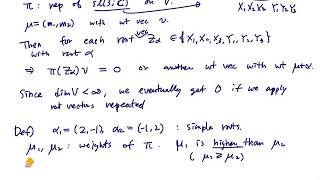 π : rep of sl(3;ℂ) on V.
X₁ X₂ X₃ Y₁ Y₂ Y₃
μ=(m₁,m₂) with wt vec v.
Then for each root vec Zα ∈ {X₁, X₂, X₃, Y₁, Y₂, Y₃}
with root α
⇒ π(Zα)v = 0 or another wt vec with wt μ+α.
Since dim V < ∞, we eventually get 0 if we apply
root vectors repeated
Def) α₁ = (2,-1), α₂ = (-1,2) : simple roots.
μ₁, μ₂ : weights of π. μ₁ is higher than μ₂
(μ₁ ≥ μ₂)